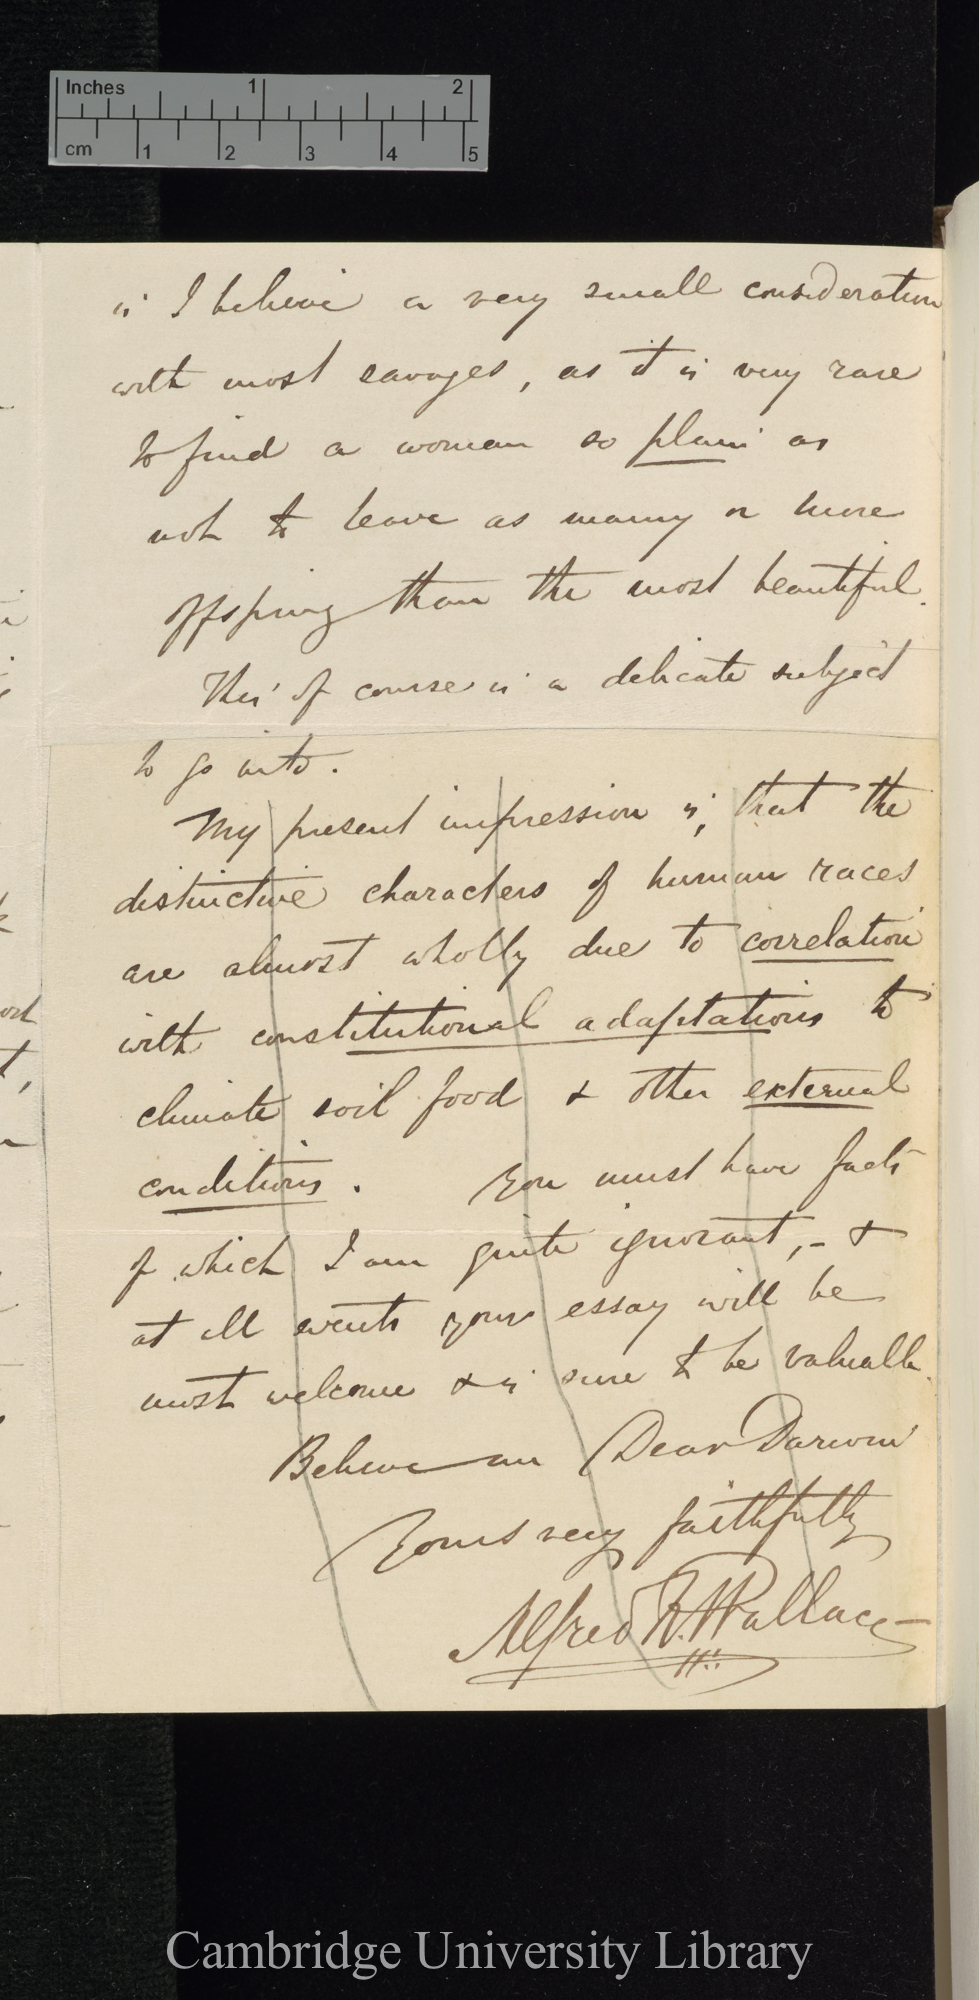 Inches 1 2
cm 1 2 3 4 5
is I believe a very small consideration
with most savages, as it is very rare
to find a woman so plain as
not to leave as many or more
offspring than the most beautiful.
This of course is a delicate subject
to go into.
My present impression is, that the
distinctive characters of human races
are almost wholly due to correlation
with constitutional adaptations to
climate soil food & other external
conditions. You must have facts
of which I am quite ignorant,- &
at all events your essay will be
most welcome & is sure to be valuable.
Believe me Dear Darwin
Yours very faithfully
Alfred R. Wallace—
Cambridge University Library